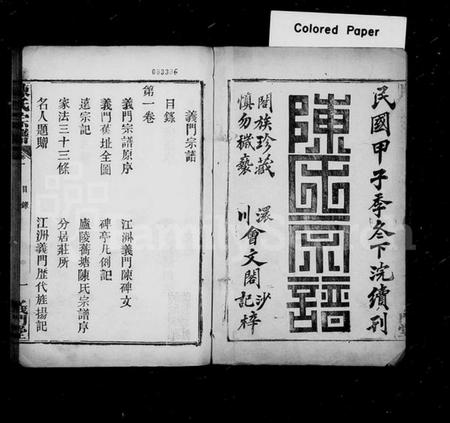 Colored Paper
083386
民國甲子季冬下浣續刊
陳氏宗譜
闔族珍藏
慎勿穢褻
澴川會文閣沙記梓
義門宗譜
目錄
第一卷
義門宗譜原序
江洲義門陳碑文
義門舊址全圖
碑亭凡例記
遠宗記
廬陵舊塘陳氏宗譜序
家法三十三條
分居莊所
名人題贈
江洲義門歷代旌揚記
陳氏宗譜
卷一
目錄
一
義門堂